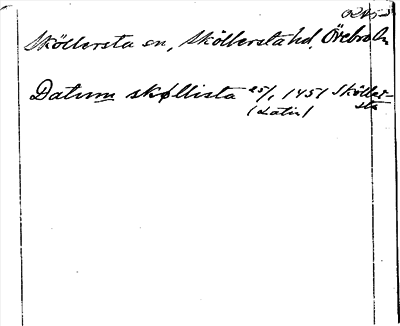 Sköllersta sn, Sköllersta hd, Örebro ln
Datum skøllista 25/1 1451 Sköller-
(Latin) sta